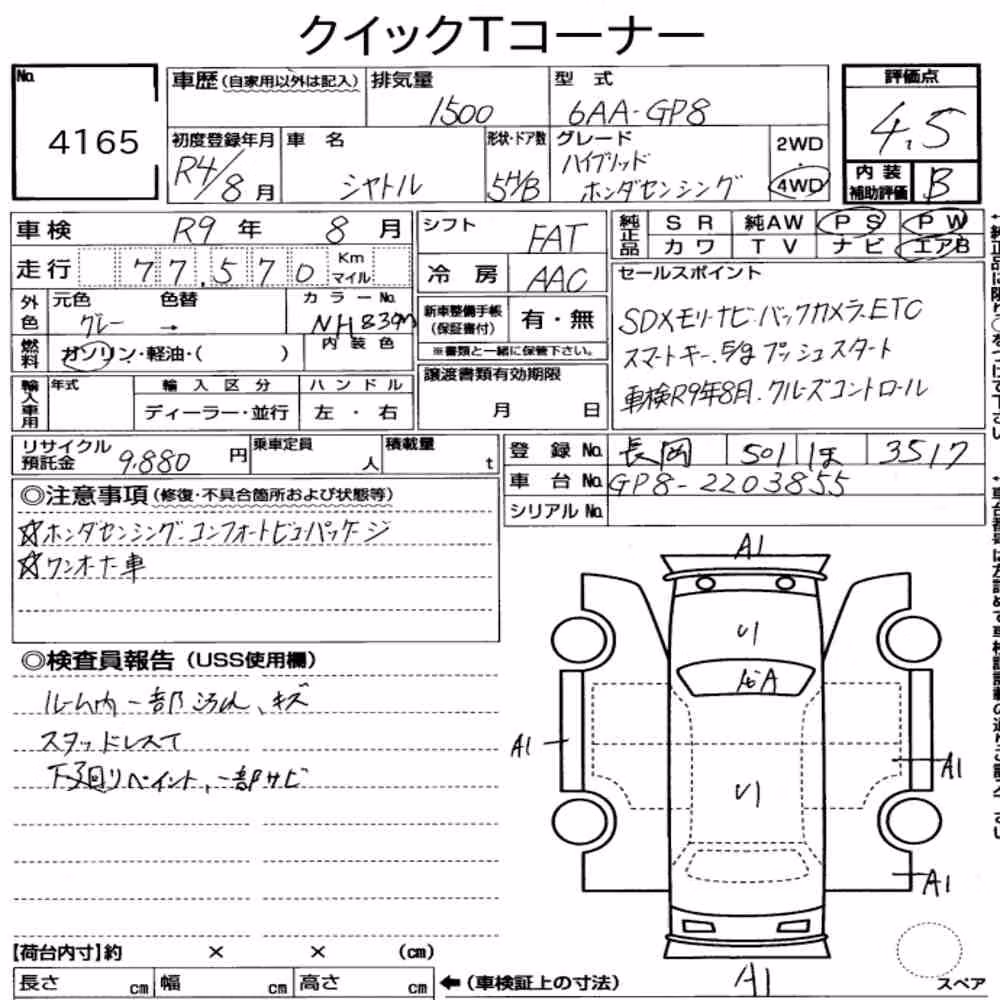 クイックTコーナー
No. 4165
車歴(自家用以外は記入) 排気量 1500 型式 6AA-GP8 評価点 4.5
初度登録年月 R4/8月 車名 シャトル 形状・ドア数 5H/B グレード ハイブリッド ホンダセンシング 2WD 4WD 内装補助評価 B
車検 R9年 8月
走行 77,570 Km マイル
外色 元色 グレー 色替 → カラーNo. NH839M
燃料 ガソリン・軽油・( ) 内装色
輸入車用 年式 輸入区分 ディーラー・並行 ハンドル 左・右
リサイクル預託金 9,880円 乗車定員 人 積載量 t
シフト FAT
冷房 AAC
新車整備手帳(保証書付) 有・無
※書類と一緒に保管下さい。
譲渡書類有効期限
月 日
純正品 SR 純AW PS PW
カワ TV ナビ エアB
セールスポイント
SDメモリーナビ.バックカメラ.ETC
スマートキー.5/gプッシュスタート
車検R9年8月.クルーズコントロール
登録No. 長岡 501 ほ 3517
車台No. GP8-2203855
シリアルNo.
◎注意事項(修復・不具合箇所および状態等)
☆ホンダセンシング.コンフォートビューパッケージ
☆ワンオーナー車
◎検査員報告(USS使用欄)
ルーム内一部汚れ、キズ
スタッドレスT
下廻りペイント、一部サビ
A1
A1
A1
A1
A1
【荷台内寸】約 × × (cm)
長さ cm 幅 cm 高さ cm ←(車検証上の寸法)
スペア